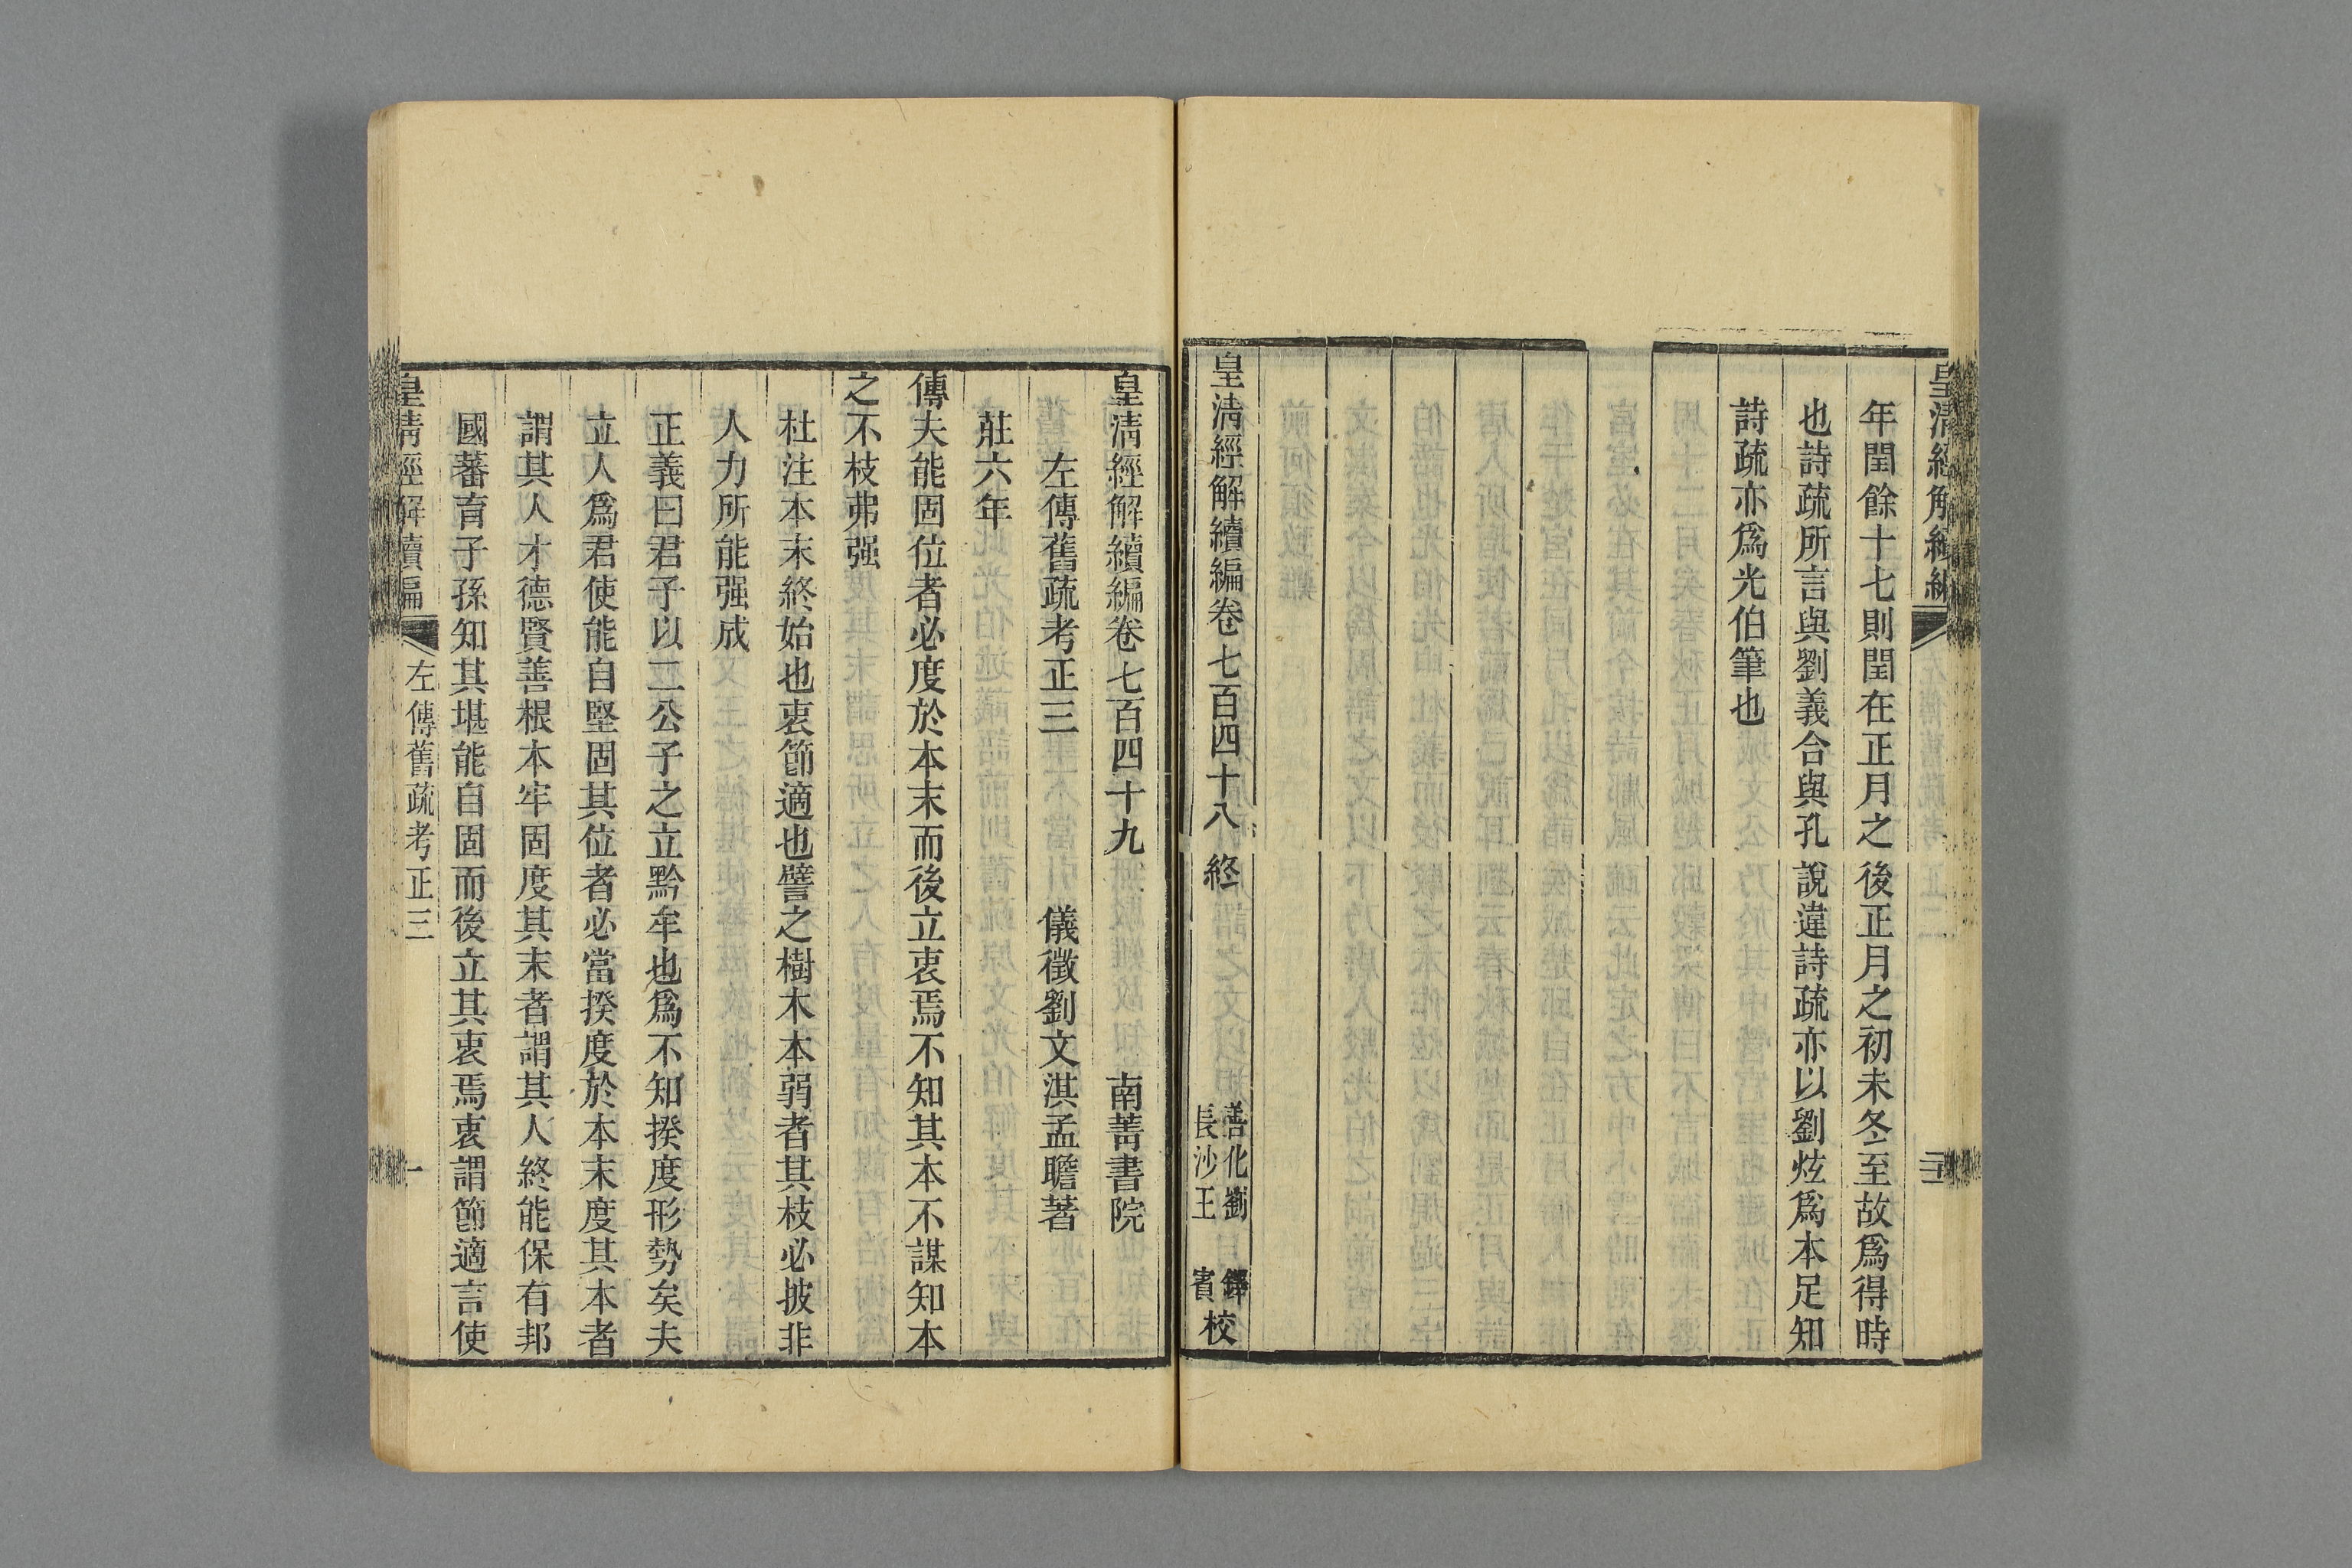 年閏餘十七則閏在正月之後正月之初未冬至故爲得時
也詩疏所言與劉義合與孔說違詩疏亦以劉炫爲本足知
詩疏亦爲光伯筆也
皇清經解續編卷七百四十八終
善化劉鐸
長沙王賓
校
皇清經解續編卷七百四十九 南菁書院
左傳舊疏考正三 儀徵劉文淇孟瞻著
莊六年
傳夫能固位者必度於本末而後立衷焉不知其本不謀知本
之不枝弗强
杜注本末終始也衷節適也譬之樹木本弱者其枝必披非
人力所能强成
正義曰君子以二公子之立黔牟也爲不知揆度形勢矣夫
立人爲君使能自堅固其位者必當揆度於本末度其本者
謂其人才德賢善根本牢固度其末者謂其人終能保有邦
國蕃育子孫知其堪能自固而後立其衷焉衷謂節適言使
皇清經解續編 左傳舊疏考正三 一